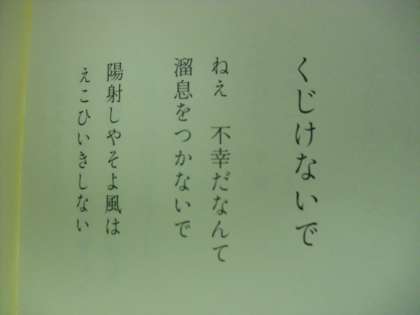 くじけないで
ねえ　不幸だなんて
溜息をつかないで
陽射しやそよ風は
えこひいきしない